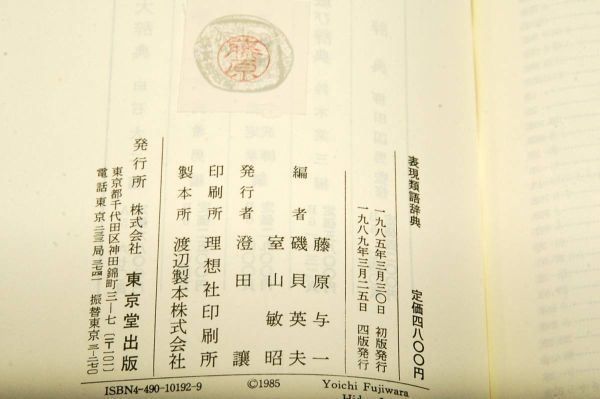 藤原
表現類語辞典
定価四八〇〇円
一九八五年三月三〇日 初版発行
一九八九年三月二五日 四版発行
藤原与一
編者 磯貝英夫
室山敏昭
発行者 澄田譲
印刷所 理想社印刷所
製本所 渡辺製本株式会社
発行所 株式会社 東京堂出版
東京都千代田区神田錦町三ー七(〒一〇一)
電話 東京 二三三局三七四一 振替東京 三ー二七〇
ISBN4-490-10192-9
©1985
Yoichi Fujiwara